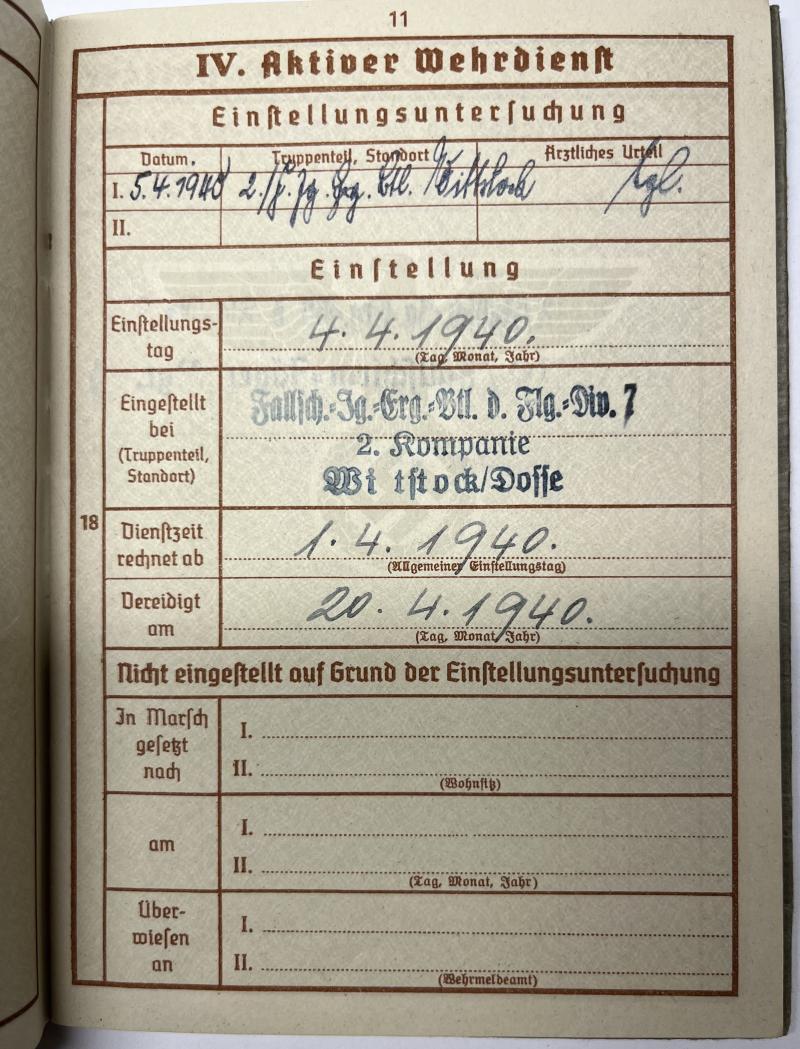 11
IV. Aktiver Wehrdienst
Einstellungsuntersuchung
Datum, Truppenteil, Standort Ärztliches Urteil
I. 5.4.1940 2./F. Jg. Erg. Btl. Wittstock tgl.
II.
Einstellung
Einstellungs-
tag
4. 4. 1940.
(Tag, Monat, Jahr)
Eingestellt
bei
(Truppenteil,
Standort)
Fallsch.-Jg.-Erg.-Btl. d. Flg.-Div. 7
2. Kompanie
Wi tstock/Dosse
18
Dienstzeit
rechnet ab
1. 4. 1940.
(Allgemeiner Einstellungstag)
Vereidigt
am
20. 4. 1940.
(Tag, Monat, Jahr)
Nicht eingestellt auf Grund der Einstellungsuntersuchung
In Marsch
gesetzt
nach
I.
II.
(Wohnsitz)
am
I.
II.
(Tag, Monat, Jahr)
Über-
wiesen
an
I.
II.
(Wehrmeldeamt)